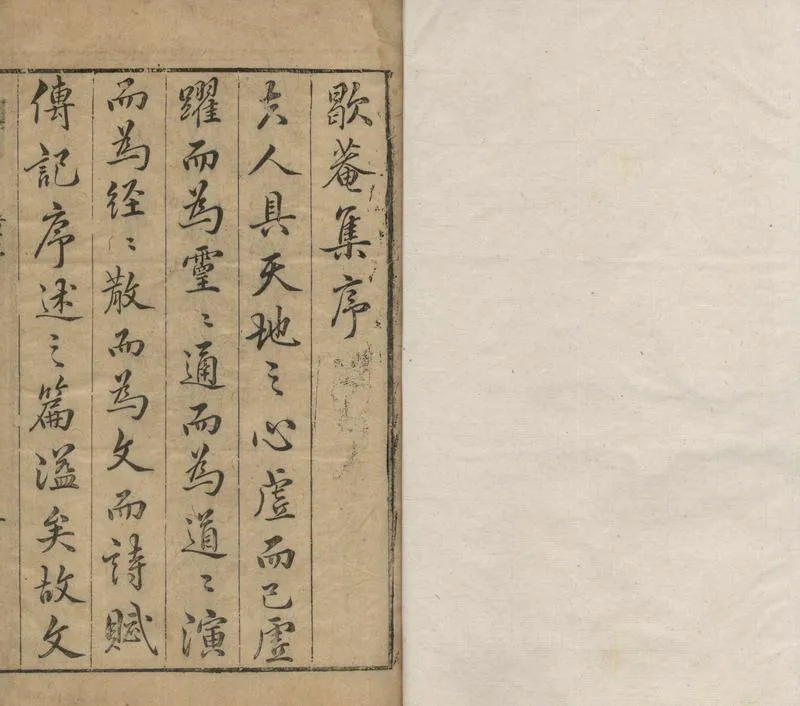 歇菴集序
夫人具天地之心虛而已虛
躍而為靈〻通而為道〻演
而為経〻散而為文而詩賦
傳記序述之篇溢矣故文